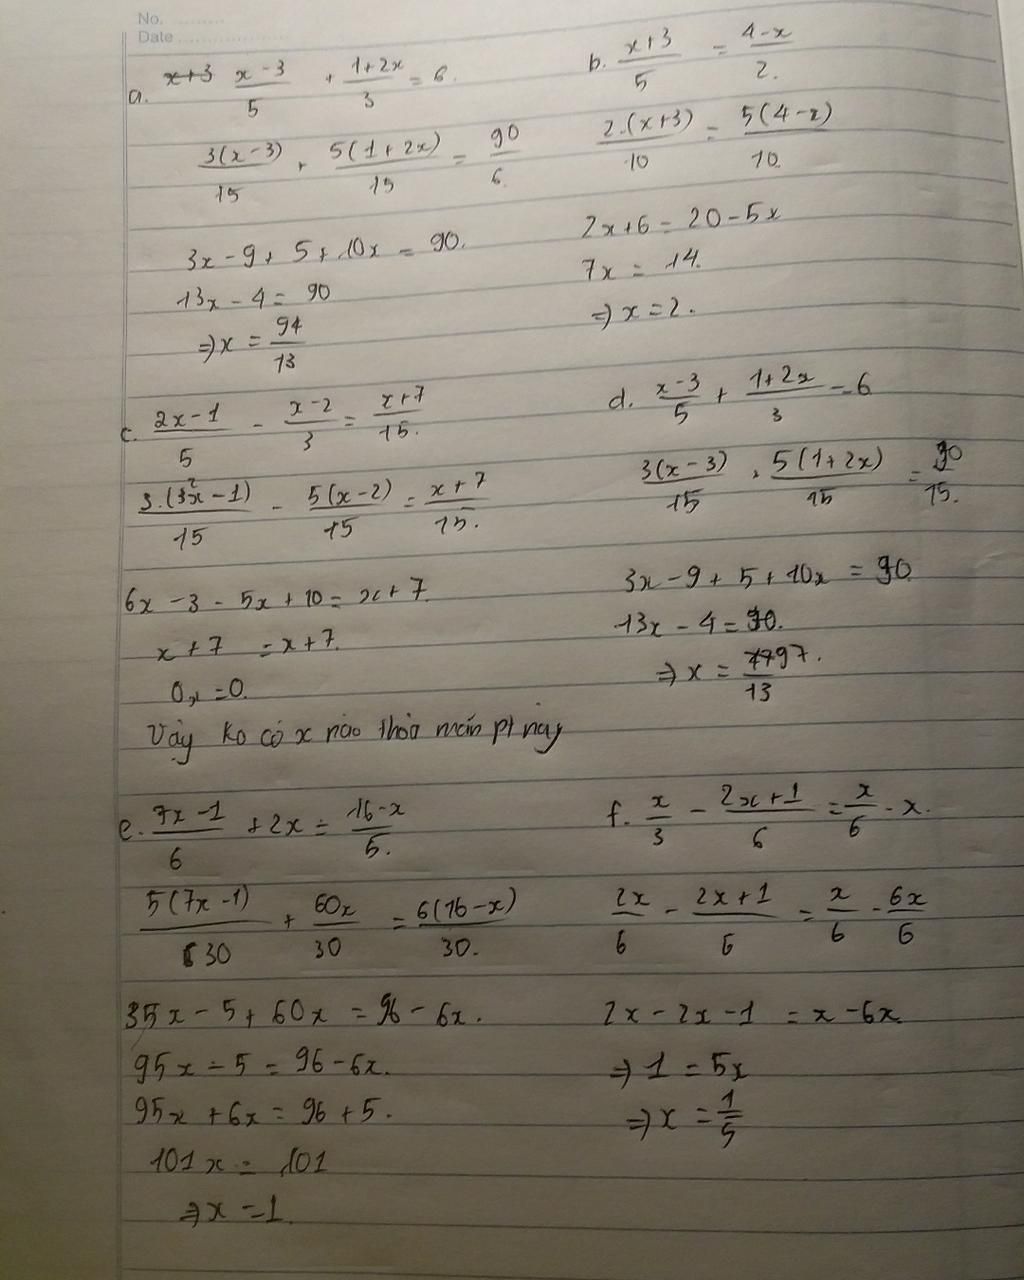 No. .........
Date ....................
a. x+3 (x-3)/5 + (1+2x)/3 = 6.
3(x-3)/15 + 5(1+2x)/15 = 90/6.
3x - 9 + 5 + 10x = 90.
13x - 4 = 90
⇒ x = 94/13
b. (x+3)/5 = (4-x)/2.
2.(x+3)/10 = 5(4-x)/10.
2x+6 = 20-5x
7x = 14.
⇒ x = 2.
c. (2x-1)/5 - (x-2)/3 = (x+7)/15.
3.(2x-1)/15 - 5(x-2)/15 = (x+7)/15.
6x - 3 - 5x + 10 = x+7.
x + 7 = x+7.
0x = 0.
Vậy ko có x nào thỏa mãn pt này
d. (x-3)/5 + (1+2x)/3 = 6
3(x-3)/15 + 5(1+2x)/15 = 90/15.
3x - 9 + 5 + 10x = 90
13x - 4 = 90.
⇒ x = 97/13.
e. (7x-1)/6 + 2x = (16-x)/5.
5(7x-1)/30 + 60x/30 = 6(16-x)/30.
35x - 5 + 60x = 96 - 6x.
95x - 5 = 96 - 6x.
95x + 6x = 96 + 5.
101x = 101
⇒ x = 1.
f. x/3 - (2x+1)/6 = x/6 - x.
2x/6 - (2x+1)/6 = x/6 - 6x/6
2x - 2x - 1 = x - 6x
⇒ 1 = 5x
⇒ x = 1/5